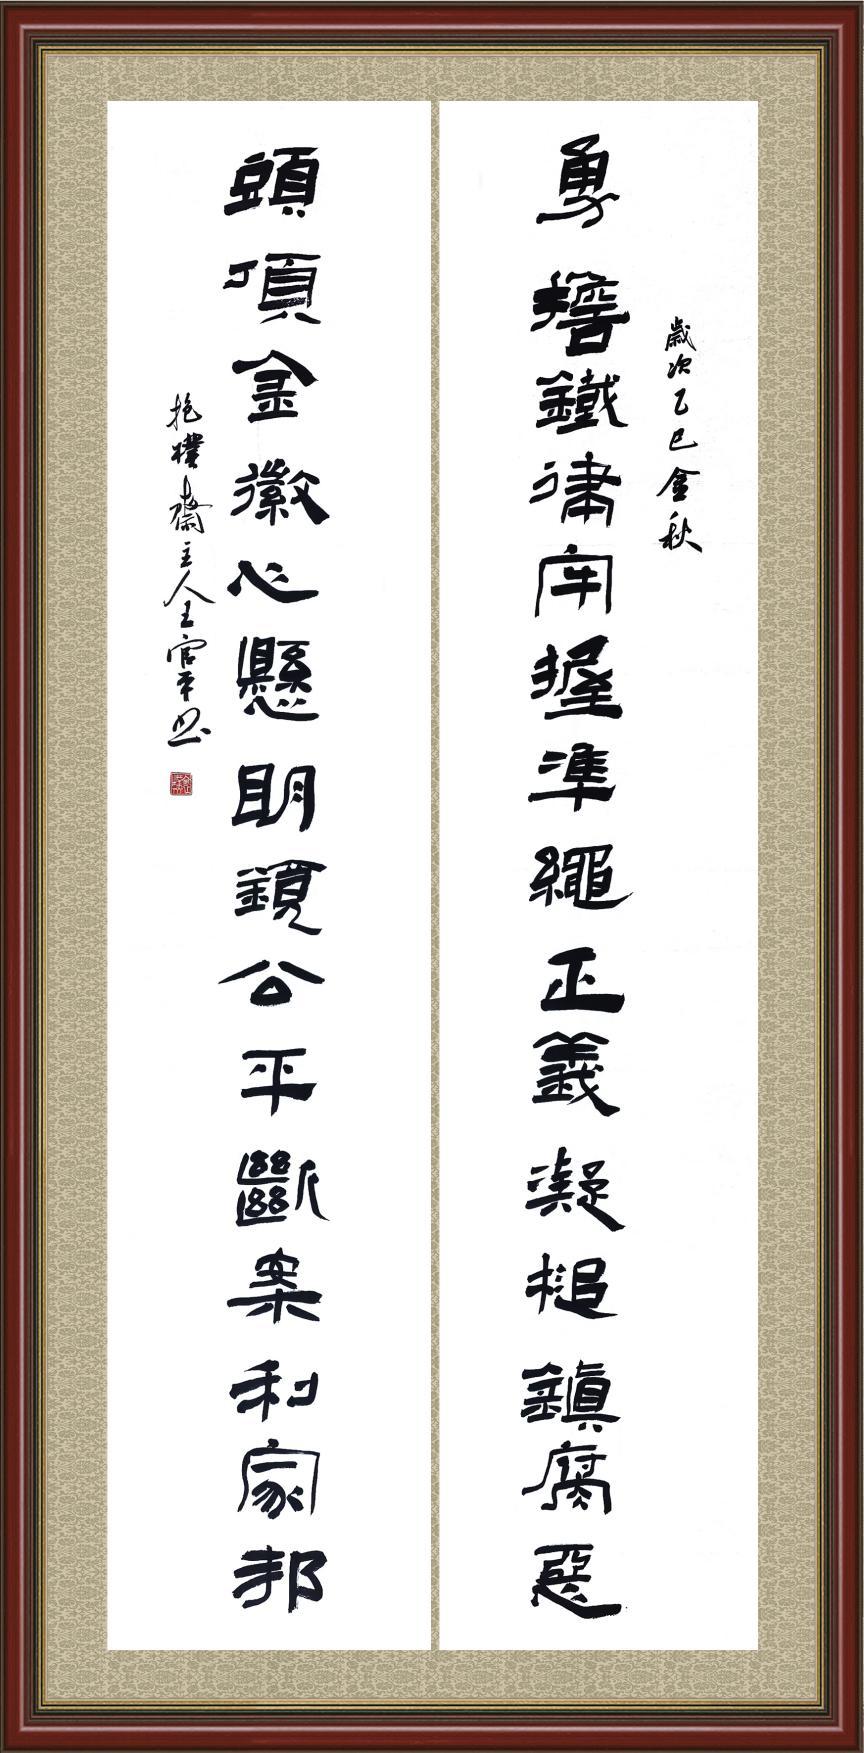 歲次乙巳金秋
勇擔鐵律牢握準繩正義凝槌鎮腐惡
頭頂金徽心懸明鏡公平斷案利家邦
抱樸齋主人王官平书